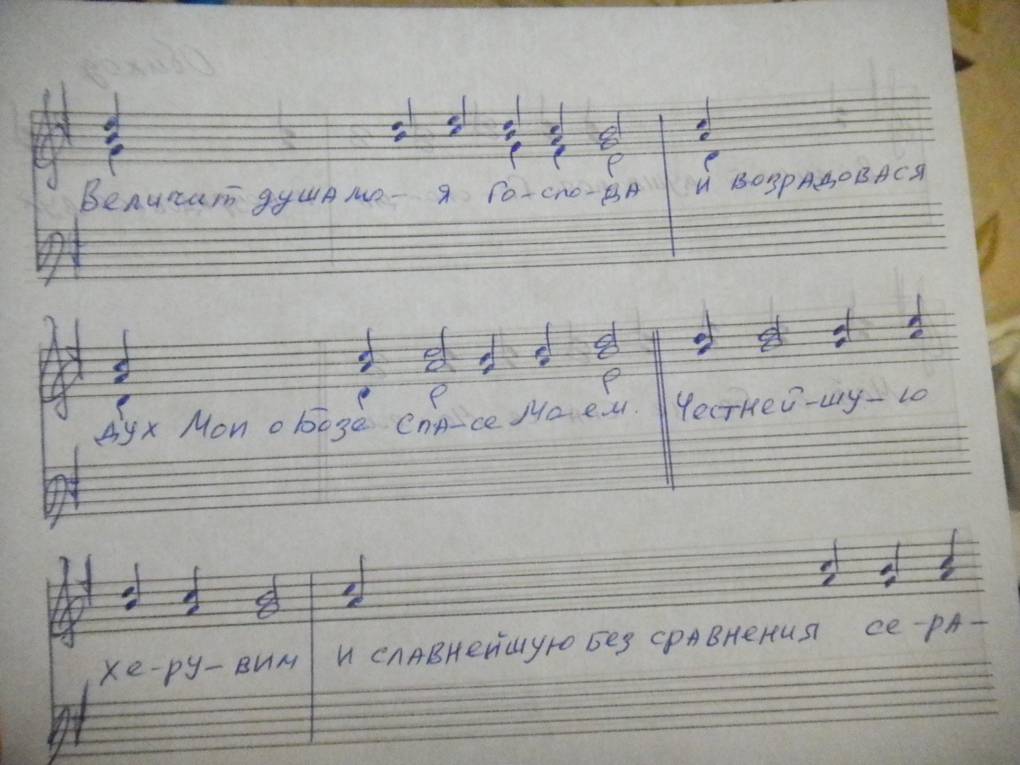 Величит душа мо- я Го-спо-да и возрадовася
дух Мой о Бозе Спа-се Мо ем. Честней-шу-ю
хе-ру-вим и славнейшую без сравнения се-ра-